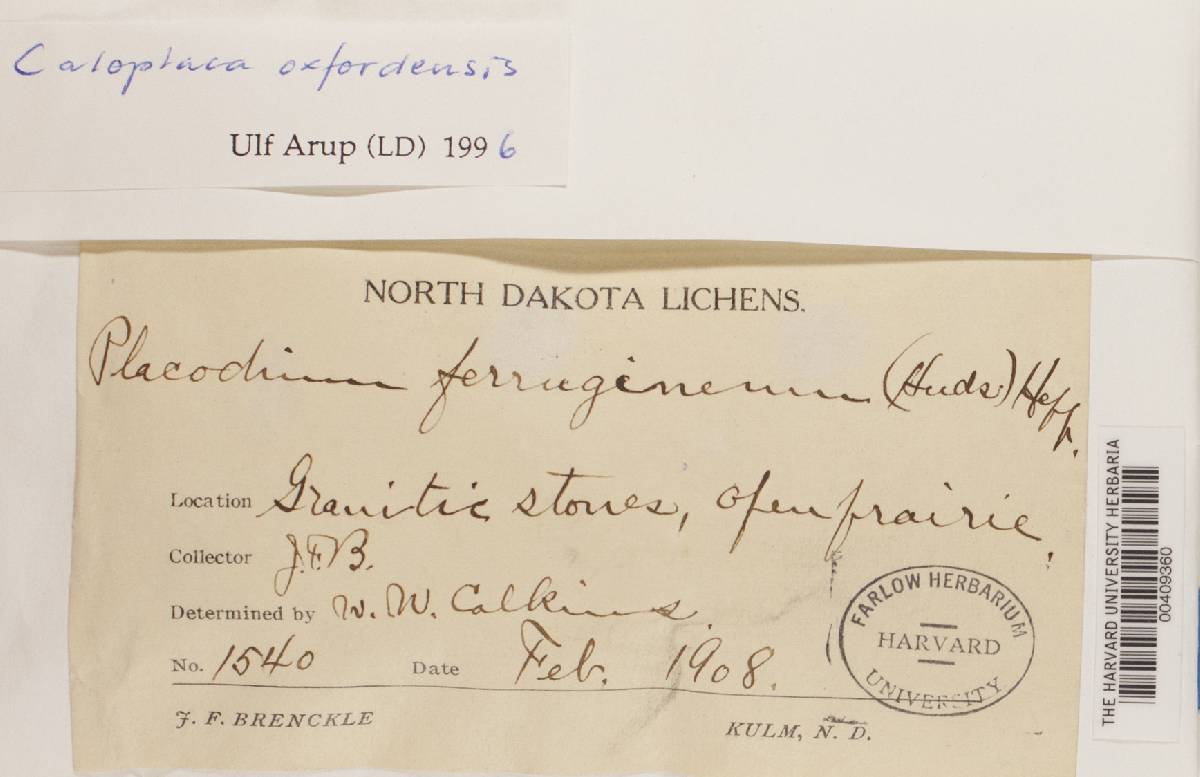 Caloplaca oxfordensis
Ulf Arup (LD) 1996
NORTH DAKOTA LICHENS.
Placodium ferrugineum (Huds) Hepp.
Location Granitic stones, open prairie.
Collector J.F.B.
Determined by W. W. Calkins.
No. 1540 Date Feb. 1908.
J. F. BRENCKLE KULM, N. D.
FARLOW HERBARIUM
HARVARD
UNIVERSITY
THE HARVARD UNIVERSITY HERBARIA
00409360